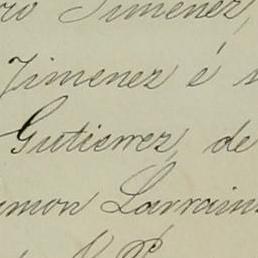 ro Jimenez,
Jimenez é s
Gutierrez, de
amon Larrain